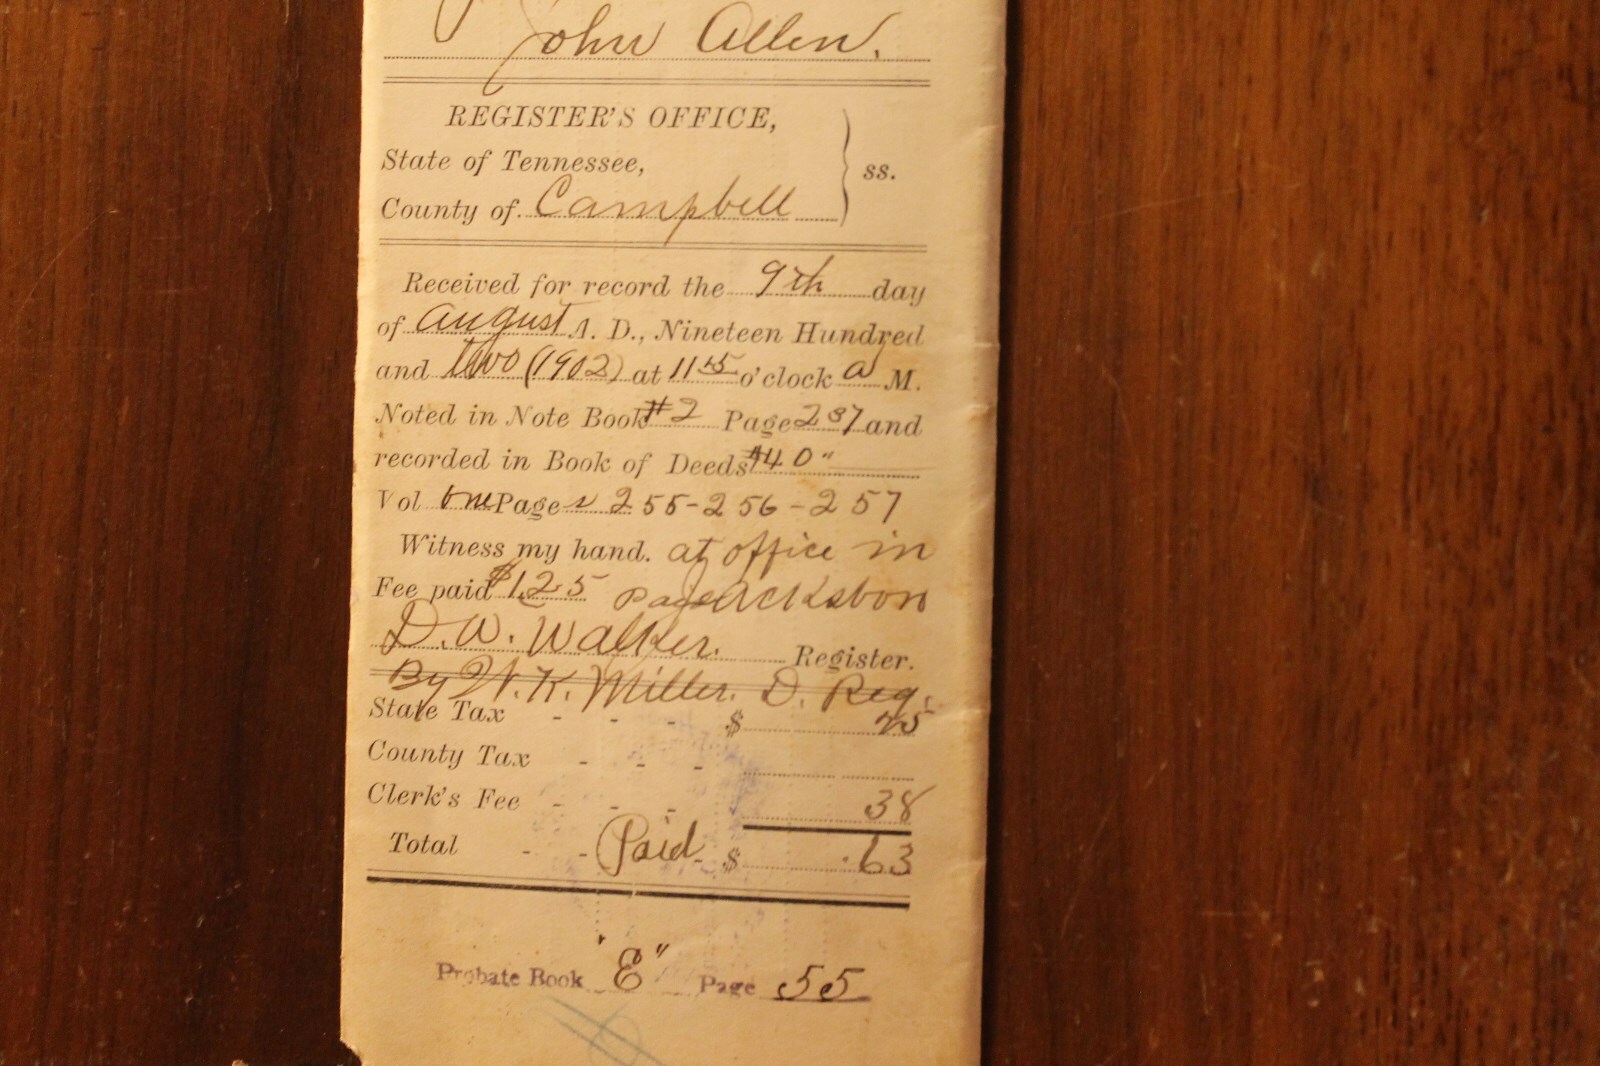 John Allen.
REGISTER'S OFFICE,
State of Tennessee,
ss.
County of Campbell
Received for record the 9th day
of August A. D., Nineteen Hundred
and two (1902) at 11 15 o'clock a M.
Noted in Note Book #2 Page 287 and
recorded in Book of Deeds #40"
Vol one Page s 255-256-257
Witness my hand. at office in
Fee paid $1.25 paid Jacksboro
D. W. Walker. Register.
By W. K. Miller. D. Reg.
State Tax - - - $ 25
County Tax - - -
Clerk's Fee - - - 38
Total - - Paid - $ .63
Probate Book "E" Page 55